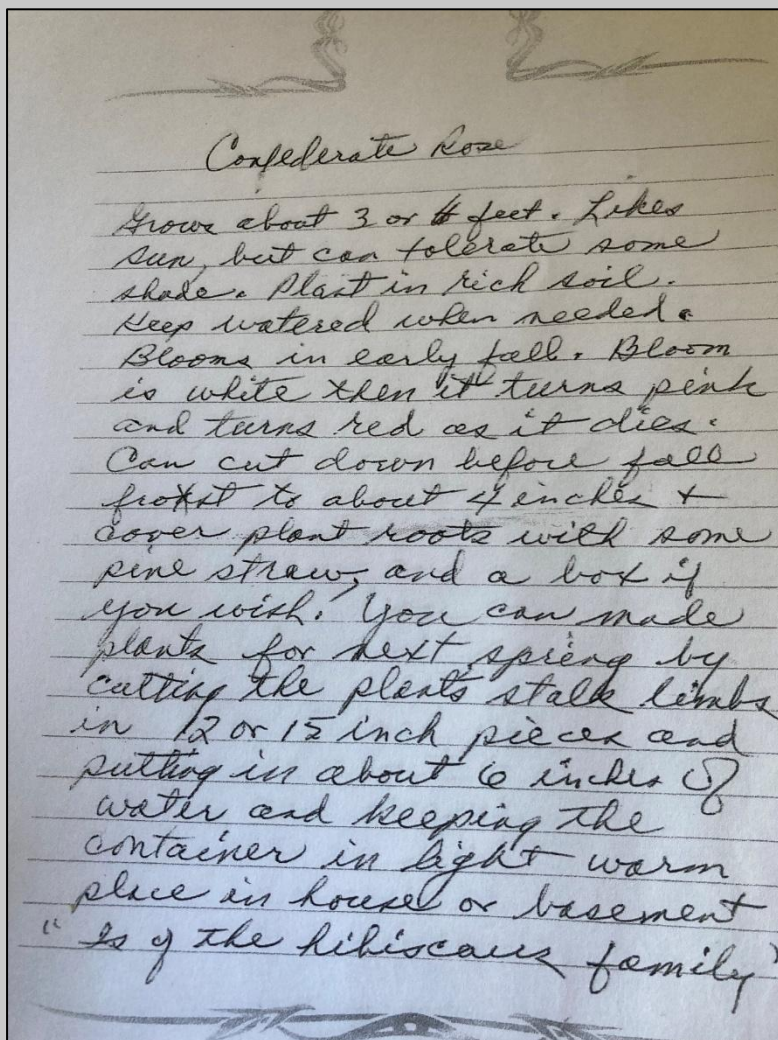 Confederate Rose
Grows about 3 or 4 feet. Likes
sun, but can tolerate some
shade. Plant in rich soil.
Keep watered when needed.
Blooms in early fall. Bloom
is white then "it" turns pink
and turns red as it dies.
Can cut down before fall
frost to about 4 inches +
cover plant roots with some
pine straw, and a box if
you wish! You can made
plants for next spring by
cutting the plants stalk limbs
in 12 or 15 inch pieces and
putting in about 6 inches of
water and keeping the
container in light warm
place in house or basement
"Is of the hibiscaus family"